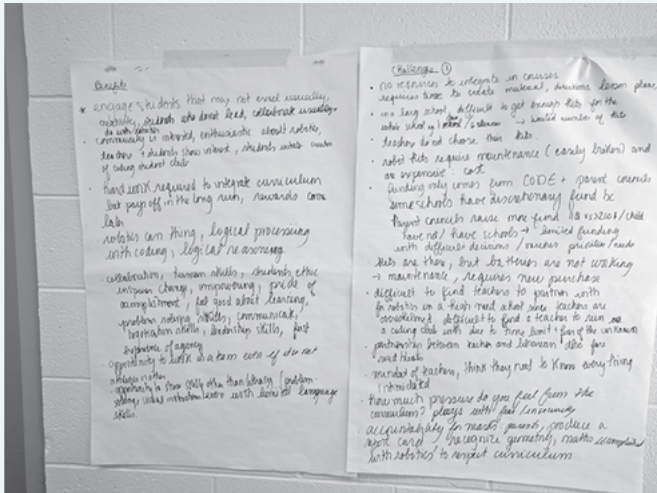 Benefits
* engage students that may not excel usually,
creativity, students who don't lead, collaborate usually
do with robotics
community is interested, enthusiastic about robotics,
teachers + students show interest, students initiate creation
of coding student club
hard work required to integrate curriculum
but pay off in the long run, rewards come
later
robotics can thing, logical processing
with coding, logical reasoning
collaboration, human skills, students ethic
inspire change, improving, pride of
accomplishment, feel good about learning,
problem solving skills, communicat,
skills, leadership skills, first
experience of agency
opportunity to work as a team even if
other
opportunity to show skills other than literacy (problem
solving, visual even with limited language
skills.
Challenges ①
no resources to integrate in courses
requires time to create material, lesson plans
in a long school, difficult to get enough kits for the
entire school limited number of kits
teacher do not choose their kits.
robot kits require maintenance (easily broken) and
are expensive : cost
funding only comes from CODE + parent councils
some schools have discretionary fund bc
Parent councils raise more fund /child
have not / have schools → limited funding
with difficult decisions / various priorities / needs
kits are there, but batteries are not working
→ maintenance, requires new purchase
difficult to find teachers to partner with
for robotics in a high need school since teachers are
overwhelmed, difficult to find a teacher to run
a coding club with due to time limit + fear of the unknown
partnership between teacher and librarian
mindset of teachers, think they need to know everything
intimidated
how much pressure do you feel from the
curriculum? plays with fear / insecurity
accountability for marks parents, produce a
report card, recognize geometry, maths
with robotics to respect curriculum